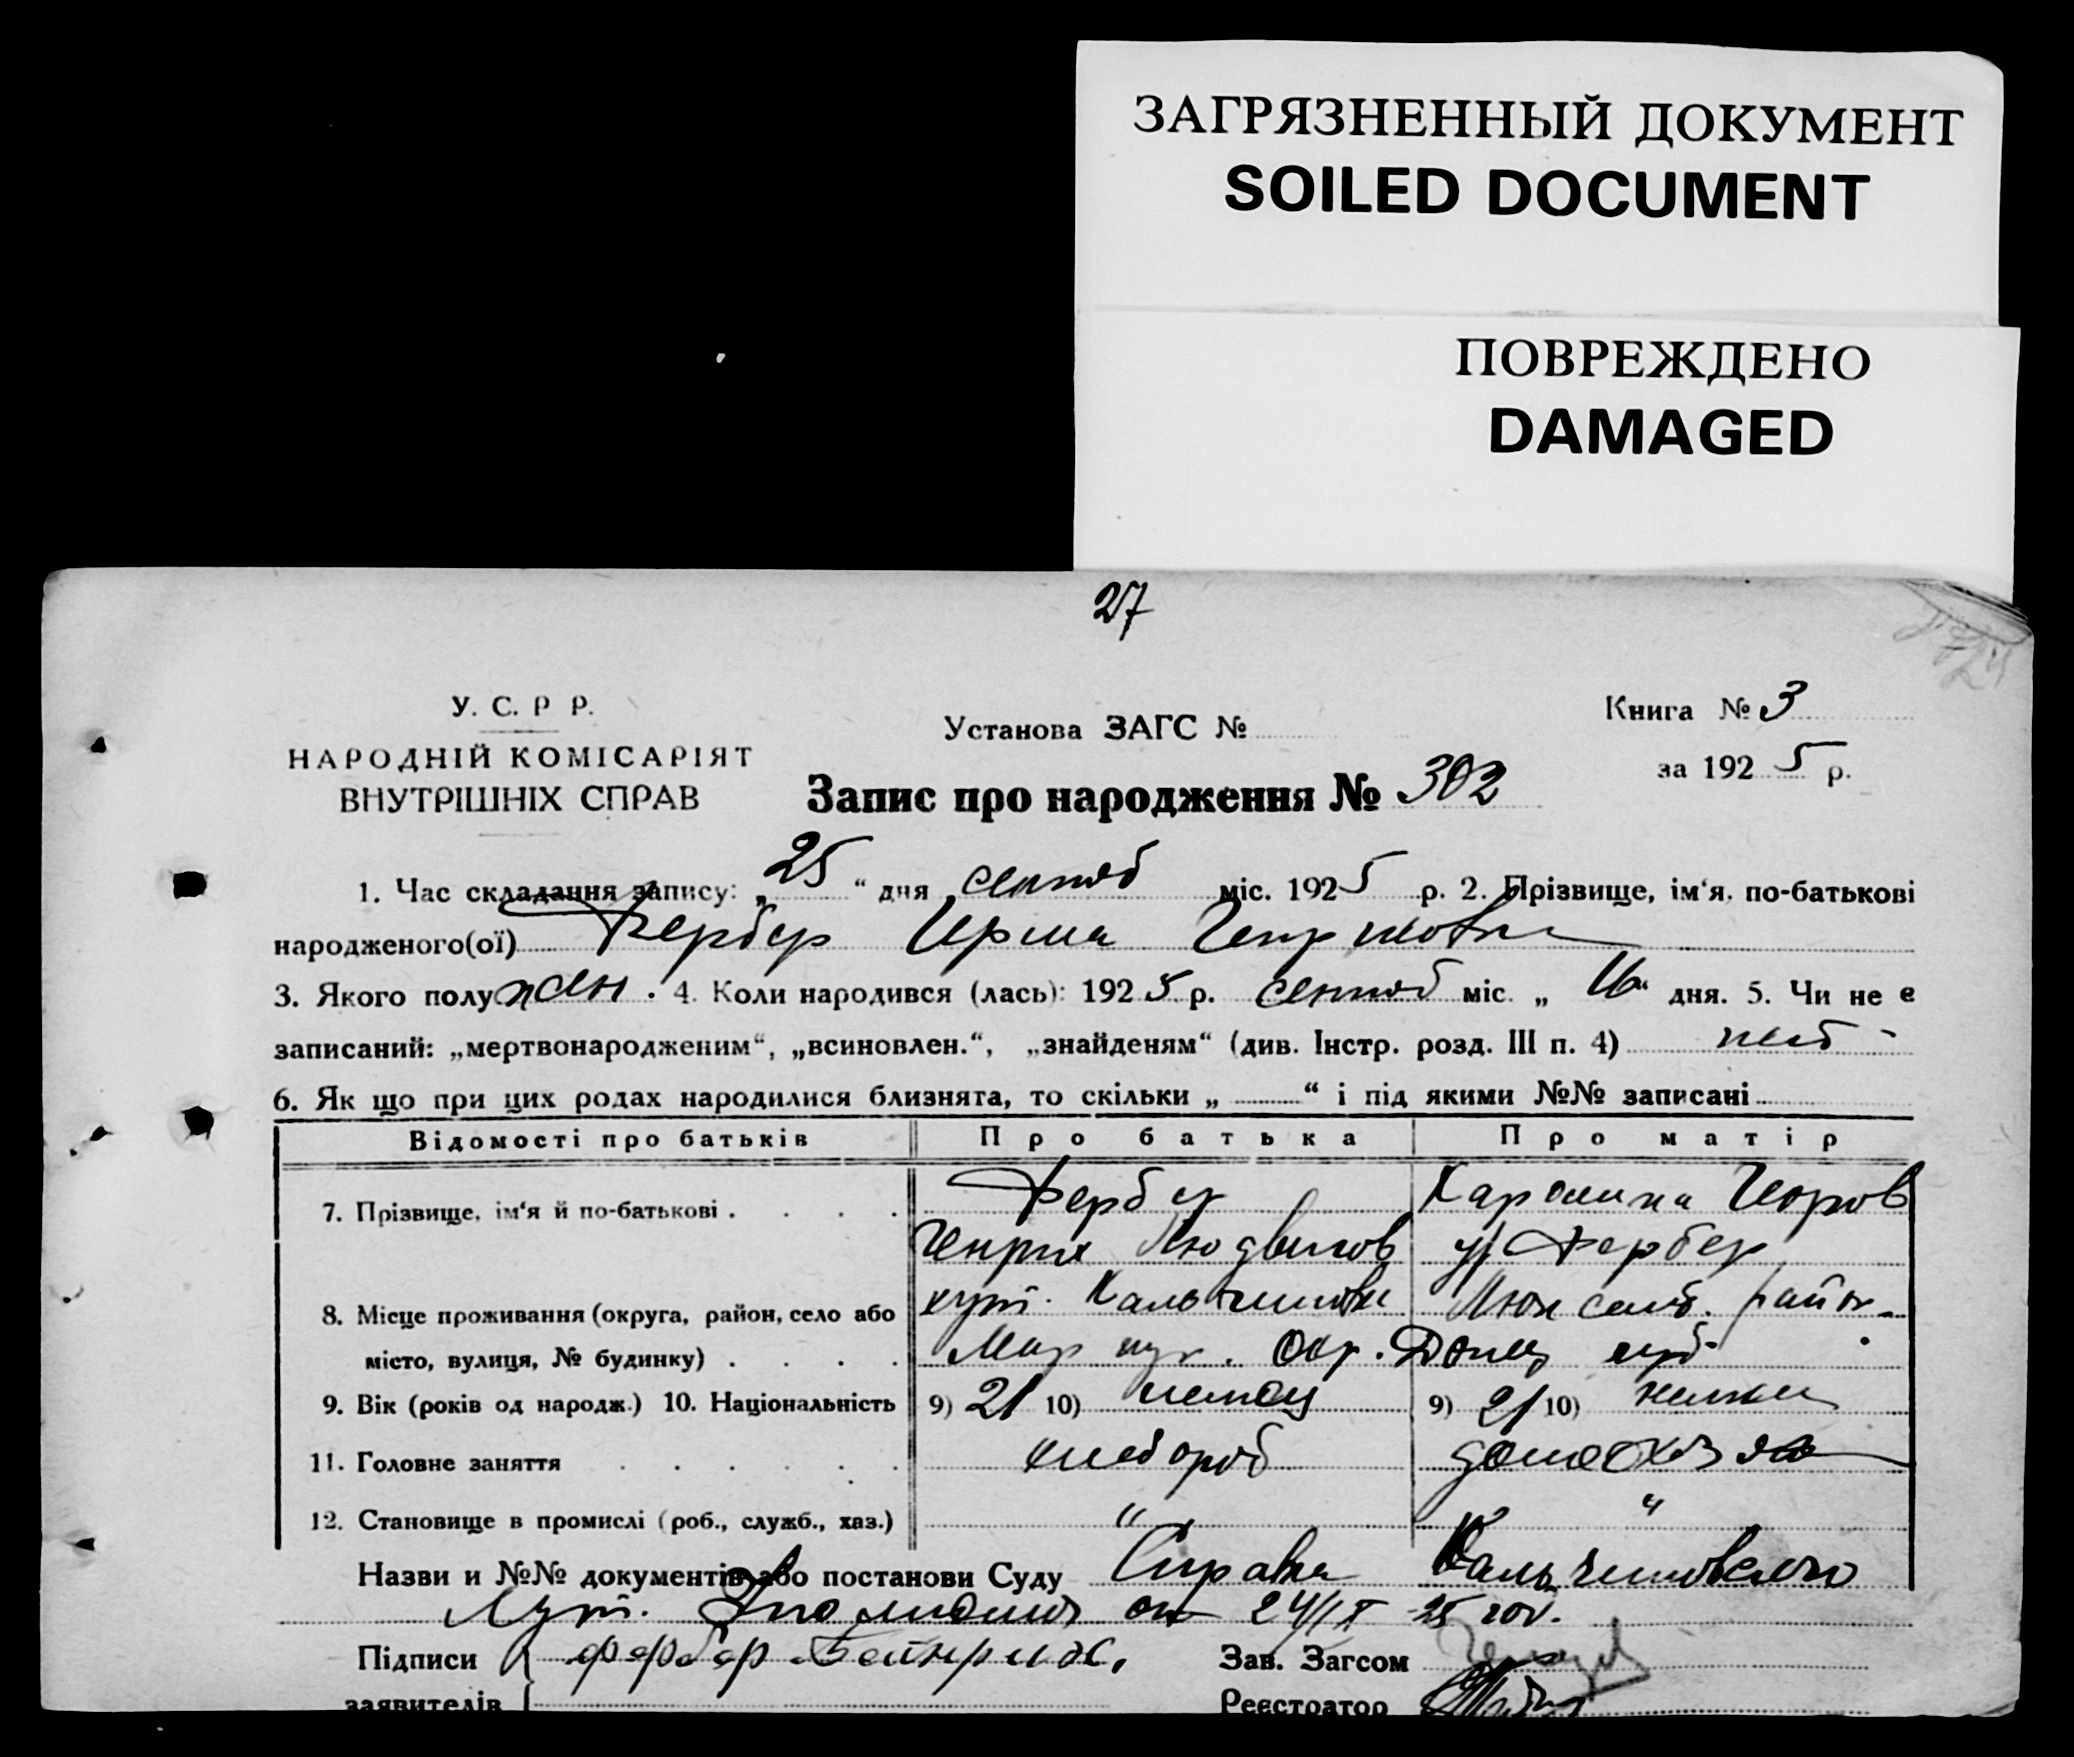 ЗАГРЯЗНЕННЫЙ ДОКУМЕНТ
SOILED DOCUMENT
ПОВРЕЖДЕНО
DAMAGED
27
У. С. Р Р.
НАРОДНІЙ КОМІСАРІЯТ
ВНУТРІШНІХ СПРАВ
Установа ЗАГС №
Запис про народження № 302
Книга № 3
за 1925 р.
1. Час складання запису: „25“ дня сентяб міс. 1925 р. 2. Прізвище, ім'я, по-батькові
народженого(ої) Фербер Ирма Генриховна
3. Якого полу жен. 4. Коли народився (лась): 1925 р. сентяб міс. „ “ дня. 5. Чи не є
записаний: „мертвонародженим“, „всиновлен.“, „знайденям“ (див. Інстр. розд. III п. 4)
6. Як що при цих родах народилися близнята, то скільки „ “ і під якими №№ записані
Відомості про батьків Про батька Про матір
7. Прізвище, ім'я й по-батькові . . . . Фербер Каролина Георов
Генрих Людвигов Фербер
8. Місце проживання (округа, район, село або хут. Кальчиновка Люксемб. район
місто, вулиця, № будинку) . . . . Окр. Донец губ.
9. Вік (років од народж.) 10. Національність 9) 21 10) немец 9) 21 10) немка
11. Головне заняття . . . . . . хлебороб домохоз
12. Становище в промислі (роб., служб., хаз.) " "
Назви и №№ документів або постанови Суду Справка Кальчиновского
хут. от 24/IX 25 год.
Підписи фербер Гейнрих.
заявителів
Зав. Загсом
Реєстратор